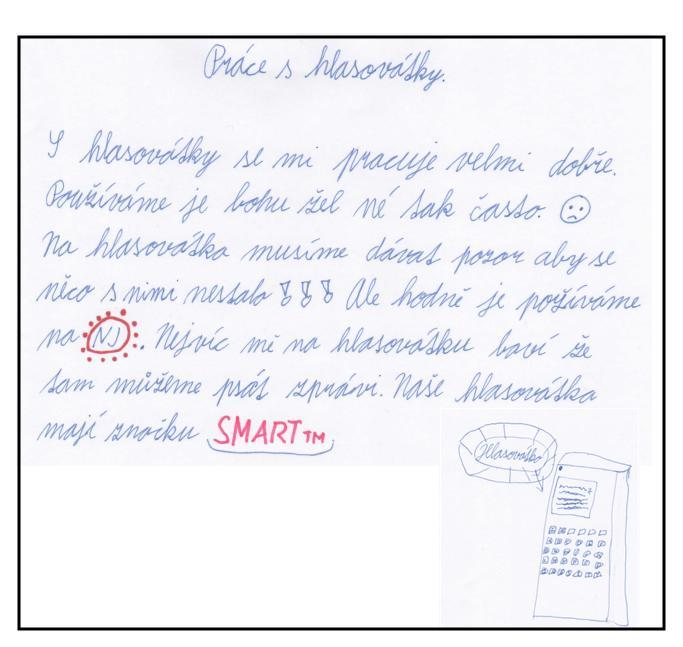 Práce s hlasovátky.
S hlasovátky se mi pracuje velmi dobře.
Používáme je bohu žel né tak často. ☹
Na hlasovátka musíme dávat pozor aby se
něco s nimi nestalo !!! Ale hodně je požíváme
na NJ. Nejvíc mě na hlasovátku baví že
tam můžeme psát zprávi. Naše hlasovátka
mají značku SMART™
Hlasovátko